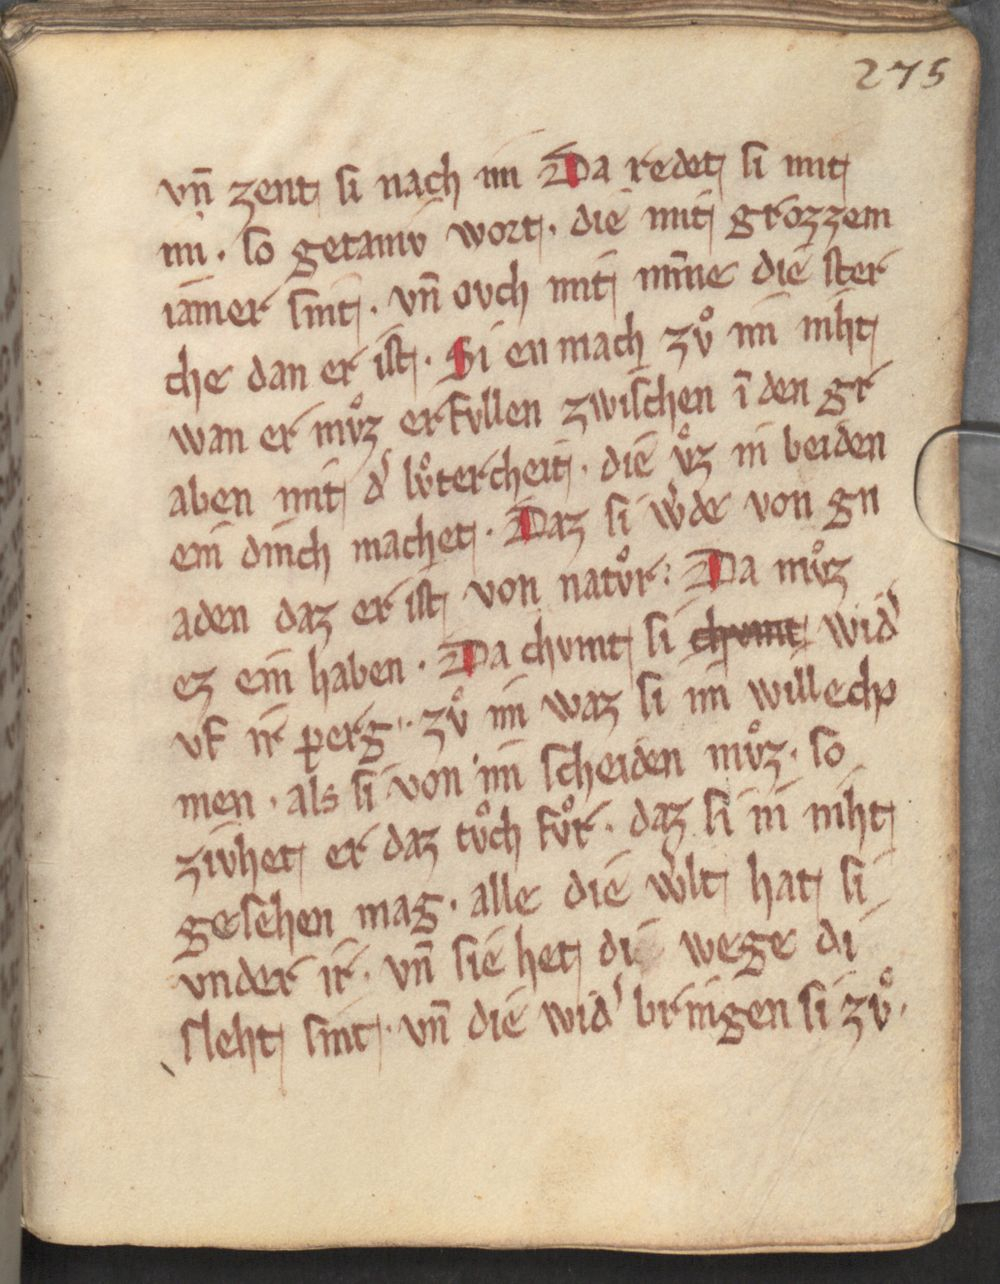 275
vn̄ zent si nach im Da redet si mit
im · so getaniv wort · die mit grozzem
iamer sint · vn̄ ovch mit minne die ster
che dan er ist · Si en mach zvͦ im niht
wan er mvͦz erfvllen zwischen ī den gr
aben mit d' lvͦtercheit · die vͦz in beiden
ein dinch machet · Daz si w'de von gn
aden daz er ist von natvͦr : Da mvͦz
ez ein haben · Da chvmt si chvmt wid'
vf ir perg · zvͦ im waz si im willechō
men · als si von im scheiden mvͦz · so
zivhet er daz tvͦch fvͦr · daz si in niht
gesehen mag · alle die w'lt hat si
vnder ir · vn̄ sie het di wege di
sleht sint · vn̄ die wid' bringen si zvͦ ·